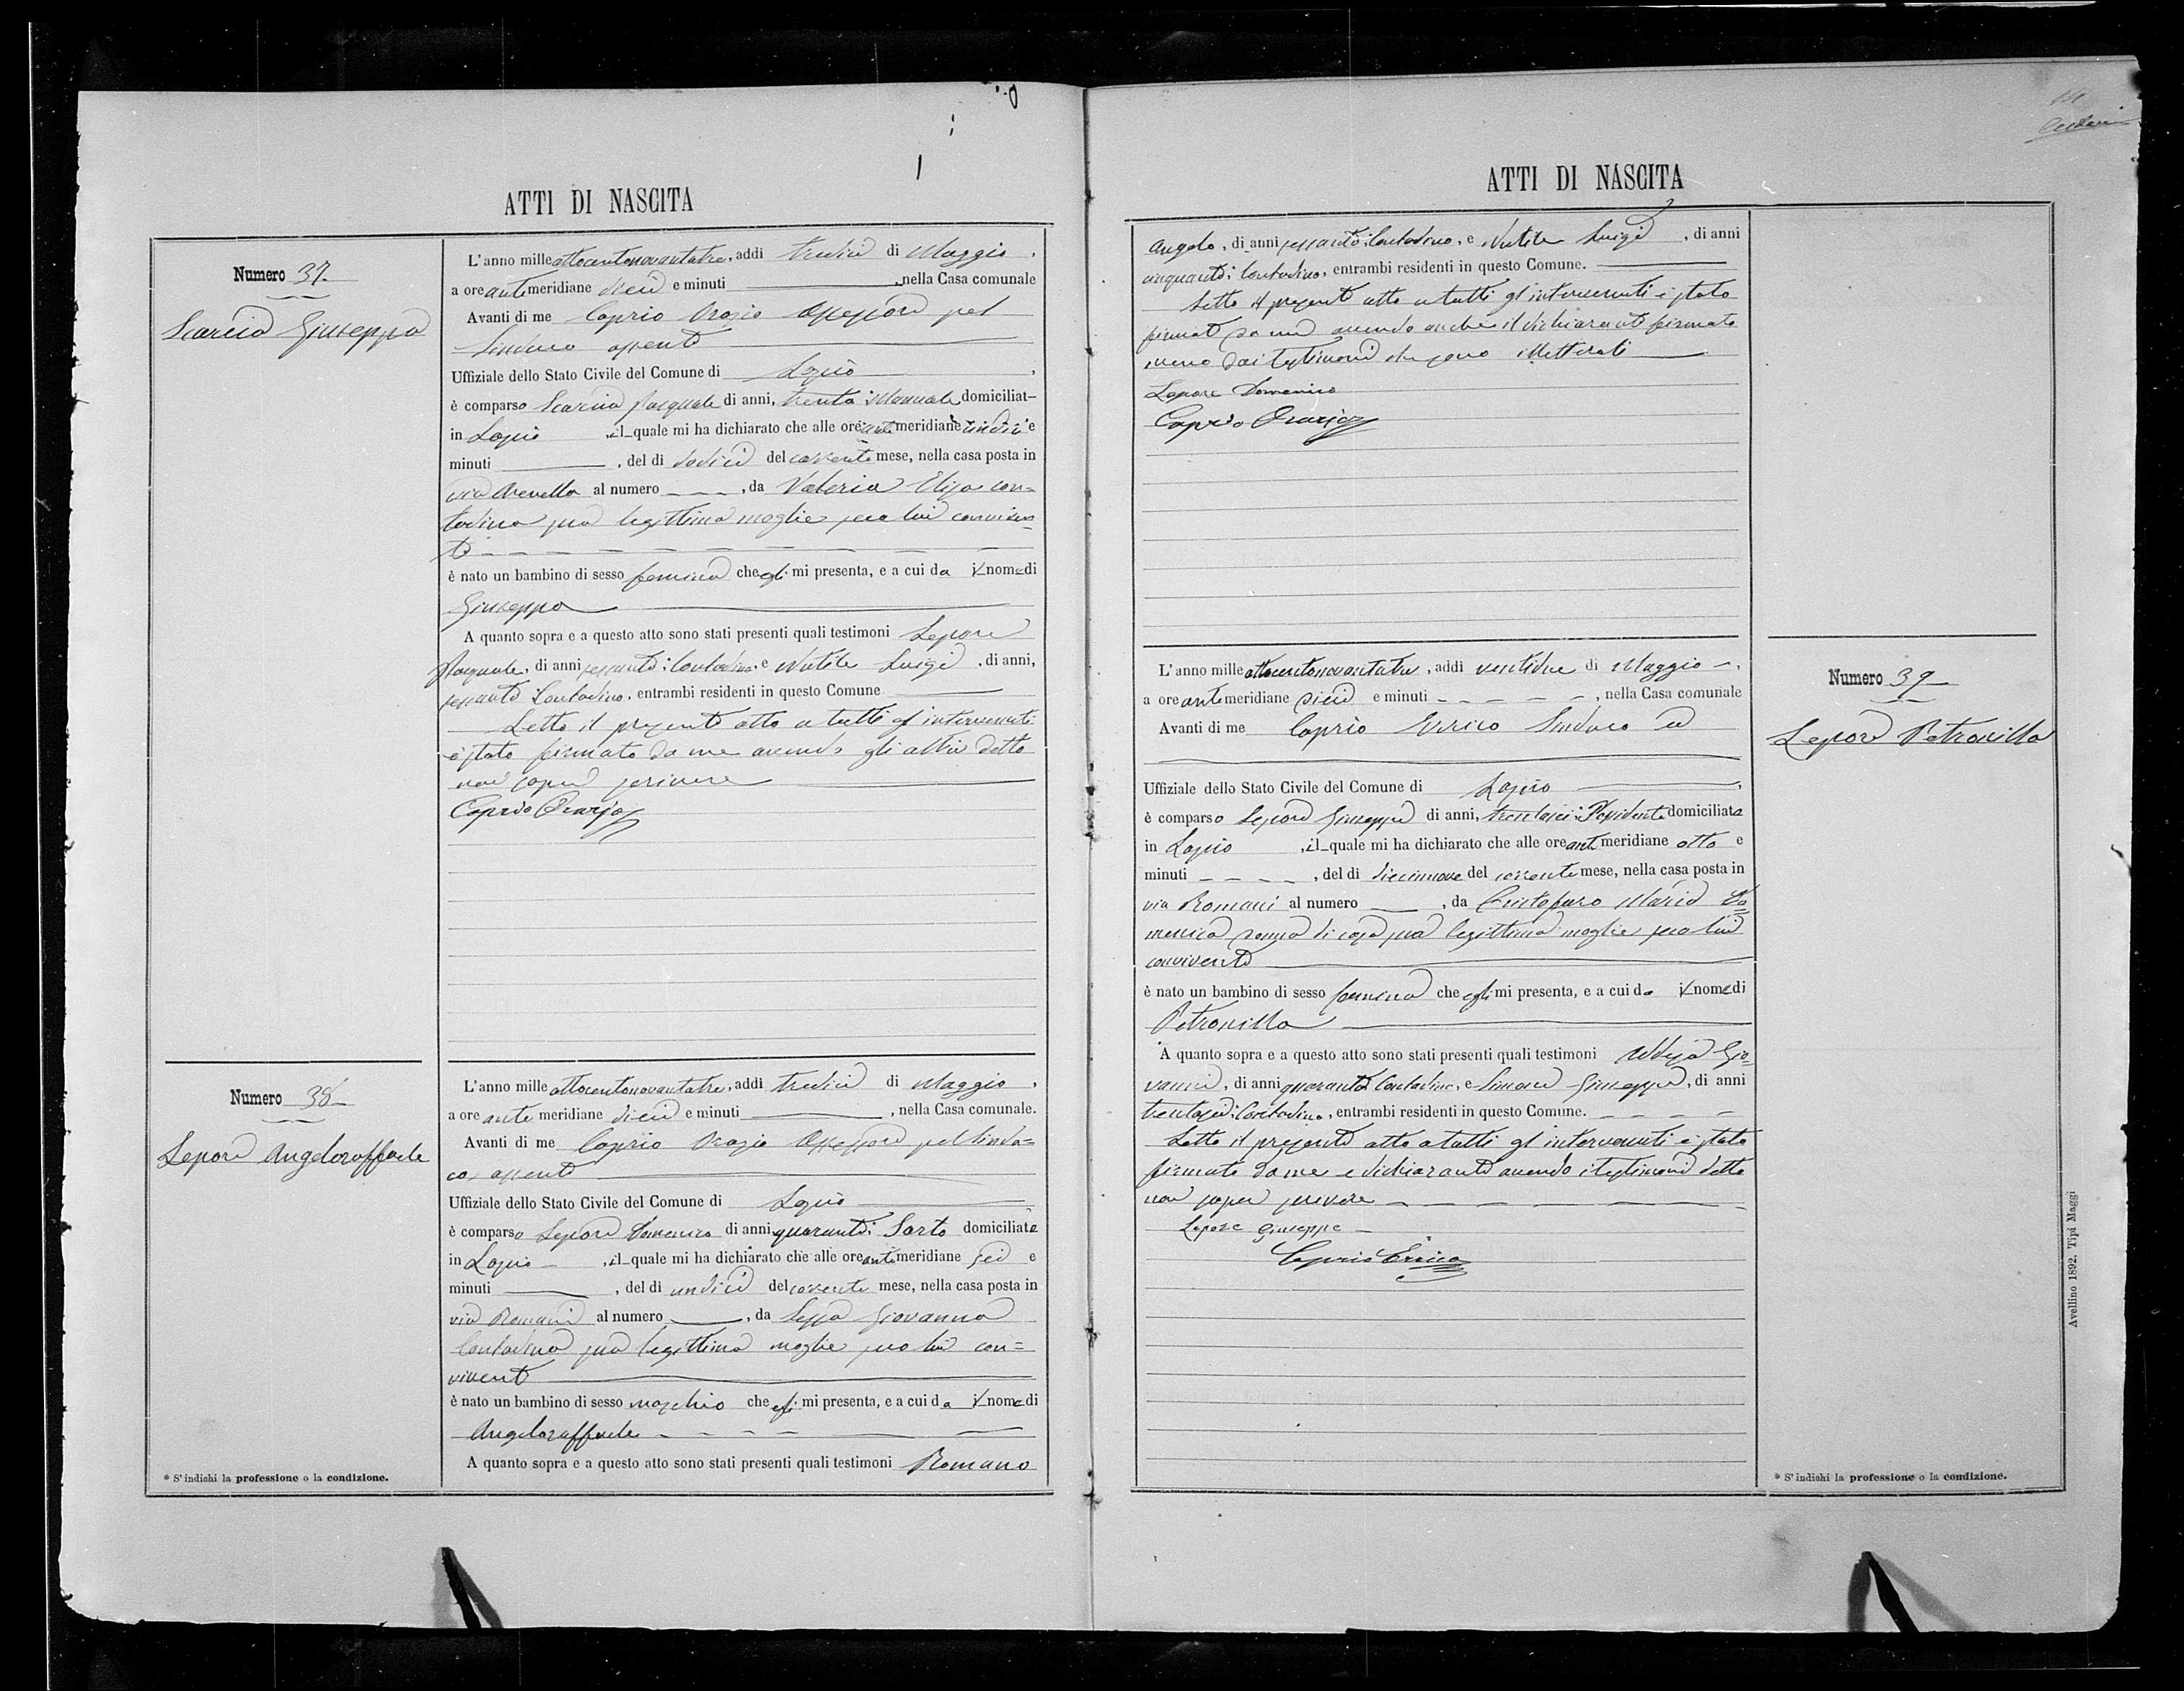 ATTI DI NASCITA
Numero 37
Scarcia Giuseppa
L'anno milleottocentonovantatre, addì tredici di Maggio,
a ore antimeridiane dieci e minuti , nella Casa comunale
Avanti di me Caprio Orazio Assessore pel
Sindaco assente
Uffiziale dello Stato Civile del Comune di Lapio,
è comparso Scarcia Pasquale di anni, trenta Manuale domiciliat-
in Lapio, il quale mi ha dichiarato che alle ore antimeridiane undici e
minuti , del dì dodici del corrente mese, nella casa posta in
via al numero , da Valeria Elisa con=
tadina sua legittima moglie seco lui conviven=
te
è nato un bambino di sesso femmina che egli mi presenta, e a cui da il nome di
Giuseppa
A quanto sopra e a questo atto sono stati presenti quali testimoni Lepore
Pasquale, di anni sessanta: Contadino, e Nutile Luigi, di anni,
sessanta Contadino, entrambi residenti in questo Comune
Letto il presente atto a tutti gl'intervenuti
è stato firmato da me avendo gli altri detto
non saper scrivere
Caprio Orazio
Numero 38
Lepore Angeloraffaele
L'anno mille ottocentonovantatre, addì tredici di Maggio,
a ore ante meridiane dieci e minuti , nella Casa comunale.
Avanti di me Caprio Orazio Assessore pel Sinda=
co, assente
Uffiziale dello Stato Civile del Comune di Lapio
è comparso Lepore Domenico di anni quaranta: Sarto domiciliato
in Lapio, il quale mi ha dichiarato che alle ore antimeridiane sei e
minuti , del dì undici del corrente mese, nella casa posta in
via Romani al numero , da Seppa Giovanna
Contadina sua legittima moglie seco lui con=
vivente
è nato un bambino di sesso maschio che egli mi presenta, e a cui da il nome di
Angeloraffaele
A quanto sopra e a questo atto sono stati presenti quali testimoni Romano
* S'indichi la professione o la condizione.
ATTI DI NASCITA
Angelo, di anni sessanta: Contadino, e Nutile Luigi, di anni
cinquanta: Contadino, entrambi residenti in questo Comune.
Letto il presente atto a tutti gl'intervenuti è stato
firmato da me avendo anche il dichiarante firmato
meno dai testimoni che sono illetterati
Lepore Domenico
Caprio Orazio
L'anno mille ottocentonovantatre, addì ventidue di Maggio,
a ore antimeridiane dieci e minuti , nella Casa comunale
Avanti di me Caprio Errico Sindaco ed
Uffiziale dello Stato Civile del Comune di Lapio,
è comparso Lepore Giuseppe di anni, trentasei: Possidente domiciliato
in Lapio, il quale mi ha dichiarato che alle ore antimeridiane otto e
minuti , del dì diecinnove del corrente mese, nella casa posta in
via Romani al numero , da Cristofaro Maria Do=
menica donna di casa sua legittima moglie seco lui
convivente
è nato un bambino di sesso femmina che egli mi presenta, e a cui da il nome di
Petronilla
A quanto sopra e a questo atto sono stati presenti quali testimoni Gio=
vanni, di anni quaranta Contadino, e Simone Giuseppe, di anni
trentasei: Contadino, entrambi residenti in questo Comune.
Letto il presente atto a tutti gl'intervenuti è stato
firmato da me e dichiarante avendo i testimoni detto
non saper scrivere
Lepore Giuseppe
Caprio Errico
Numero 39
Lepore Petronilla
* S'indichi la professione o la condizione.
Avellino 1892. Tipi Maggi